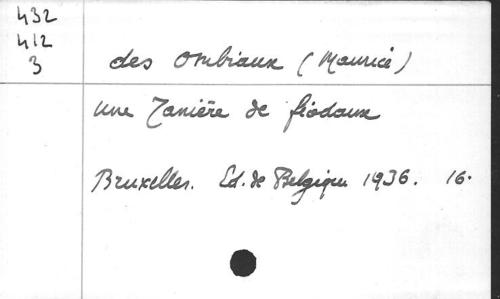 432
412
3
des Ombiaux (Maurice)
une Tanière de féodaux
Bruxelles. Ed. de Belgique 1936. 16.